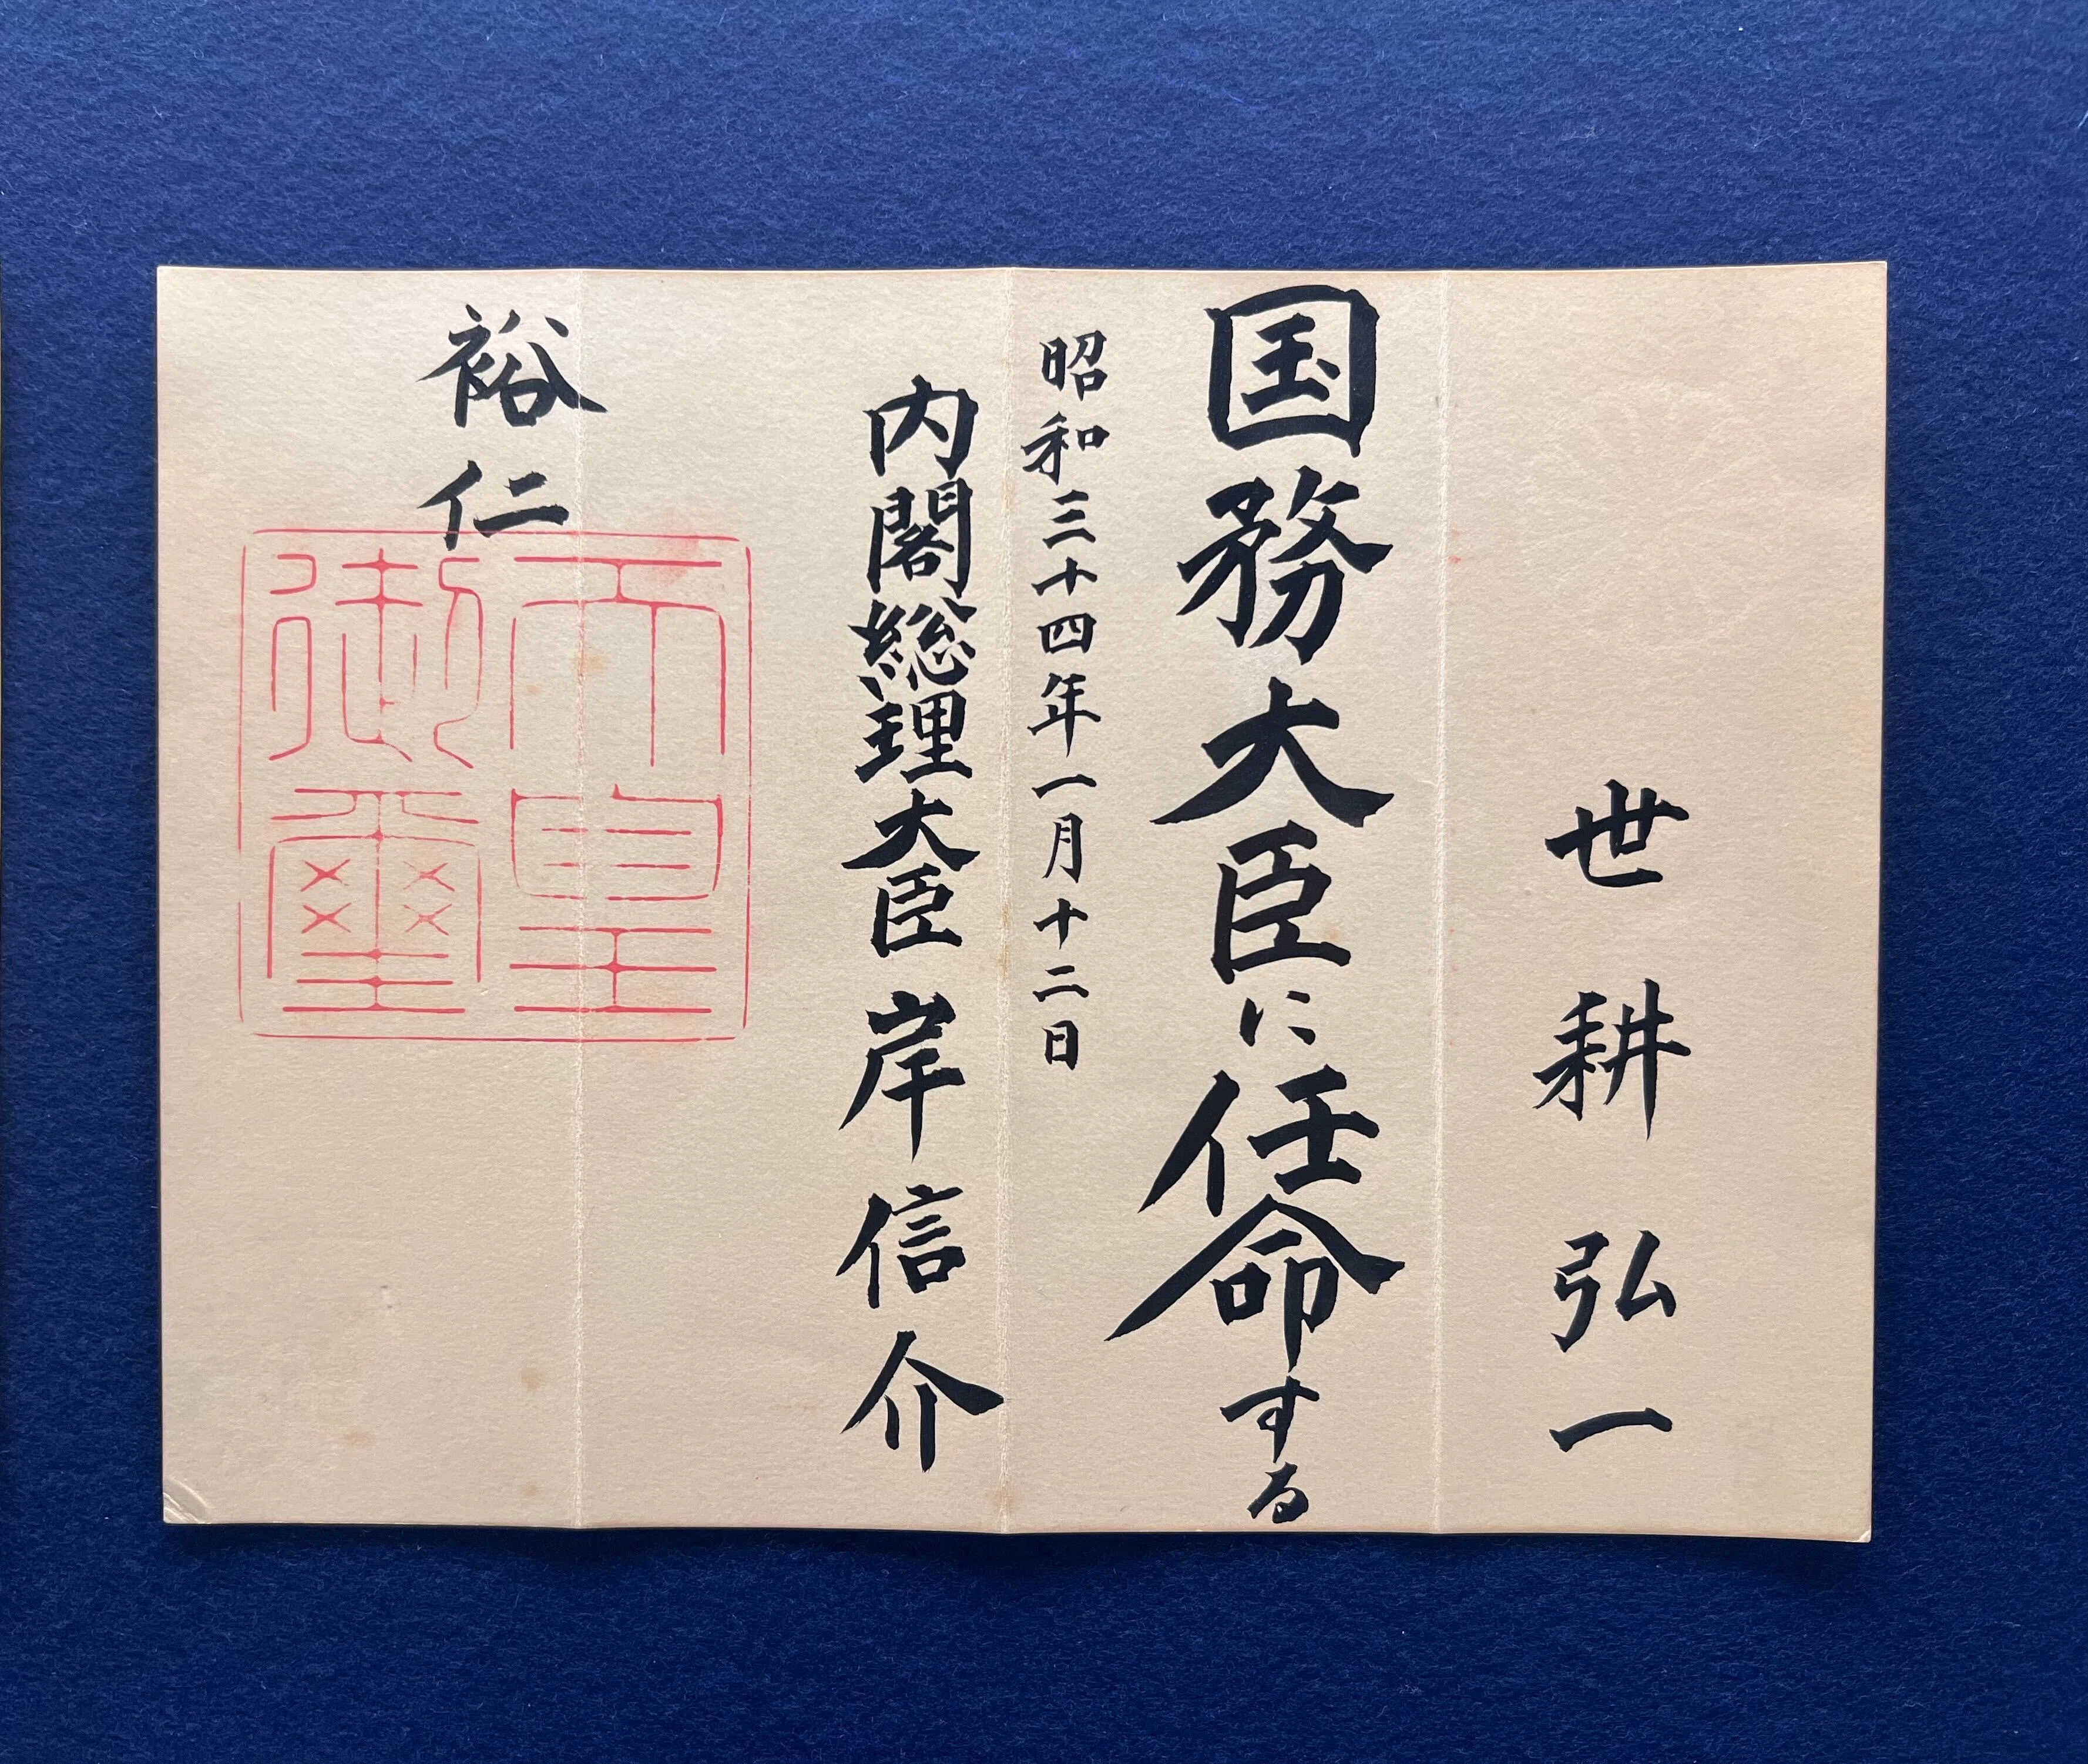 世耕弘一
国務大臣に任命する
昭和三十四年一月十二日
内閣総理大臣 岸信介
裕仁
天皇
御璽